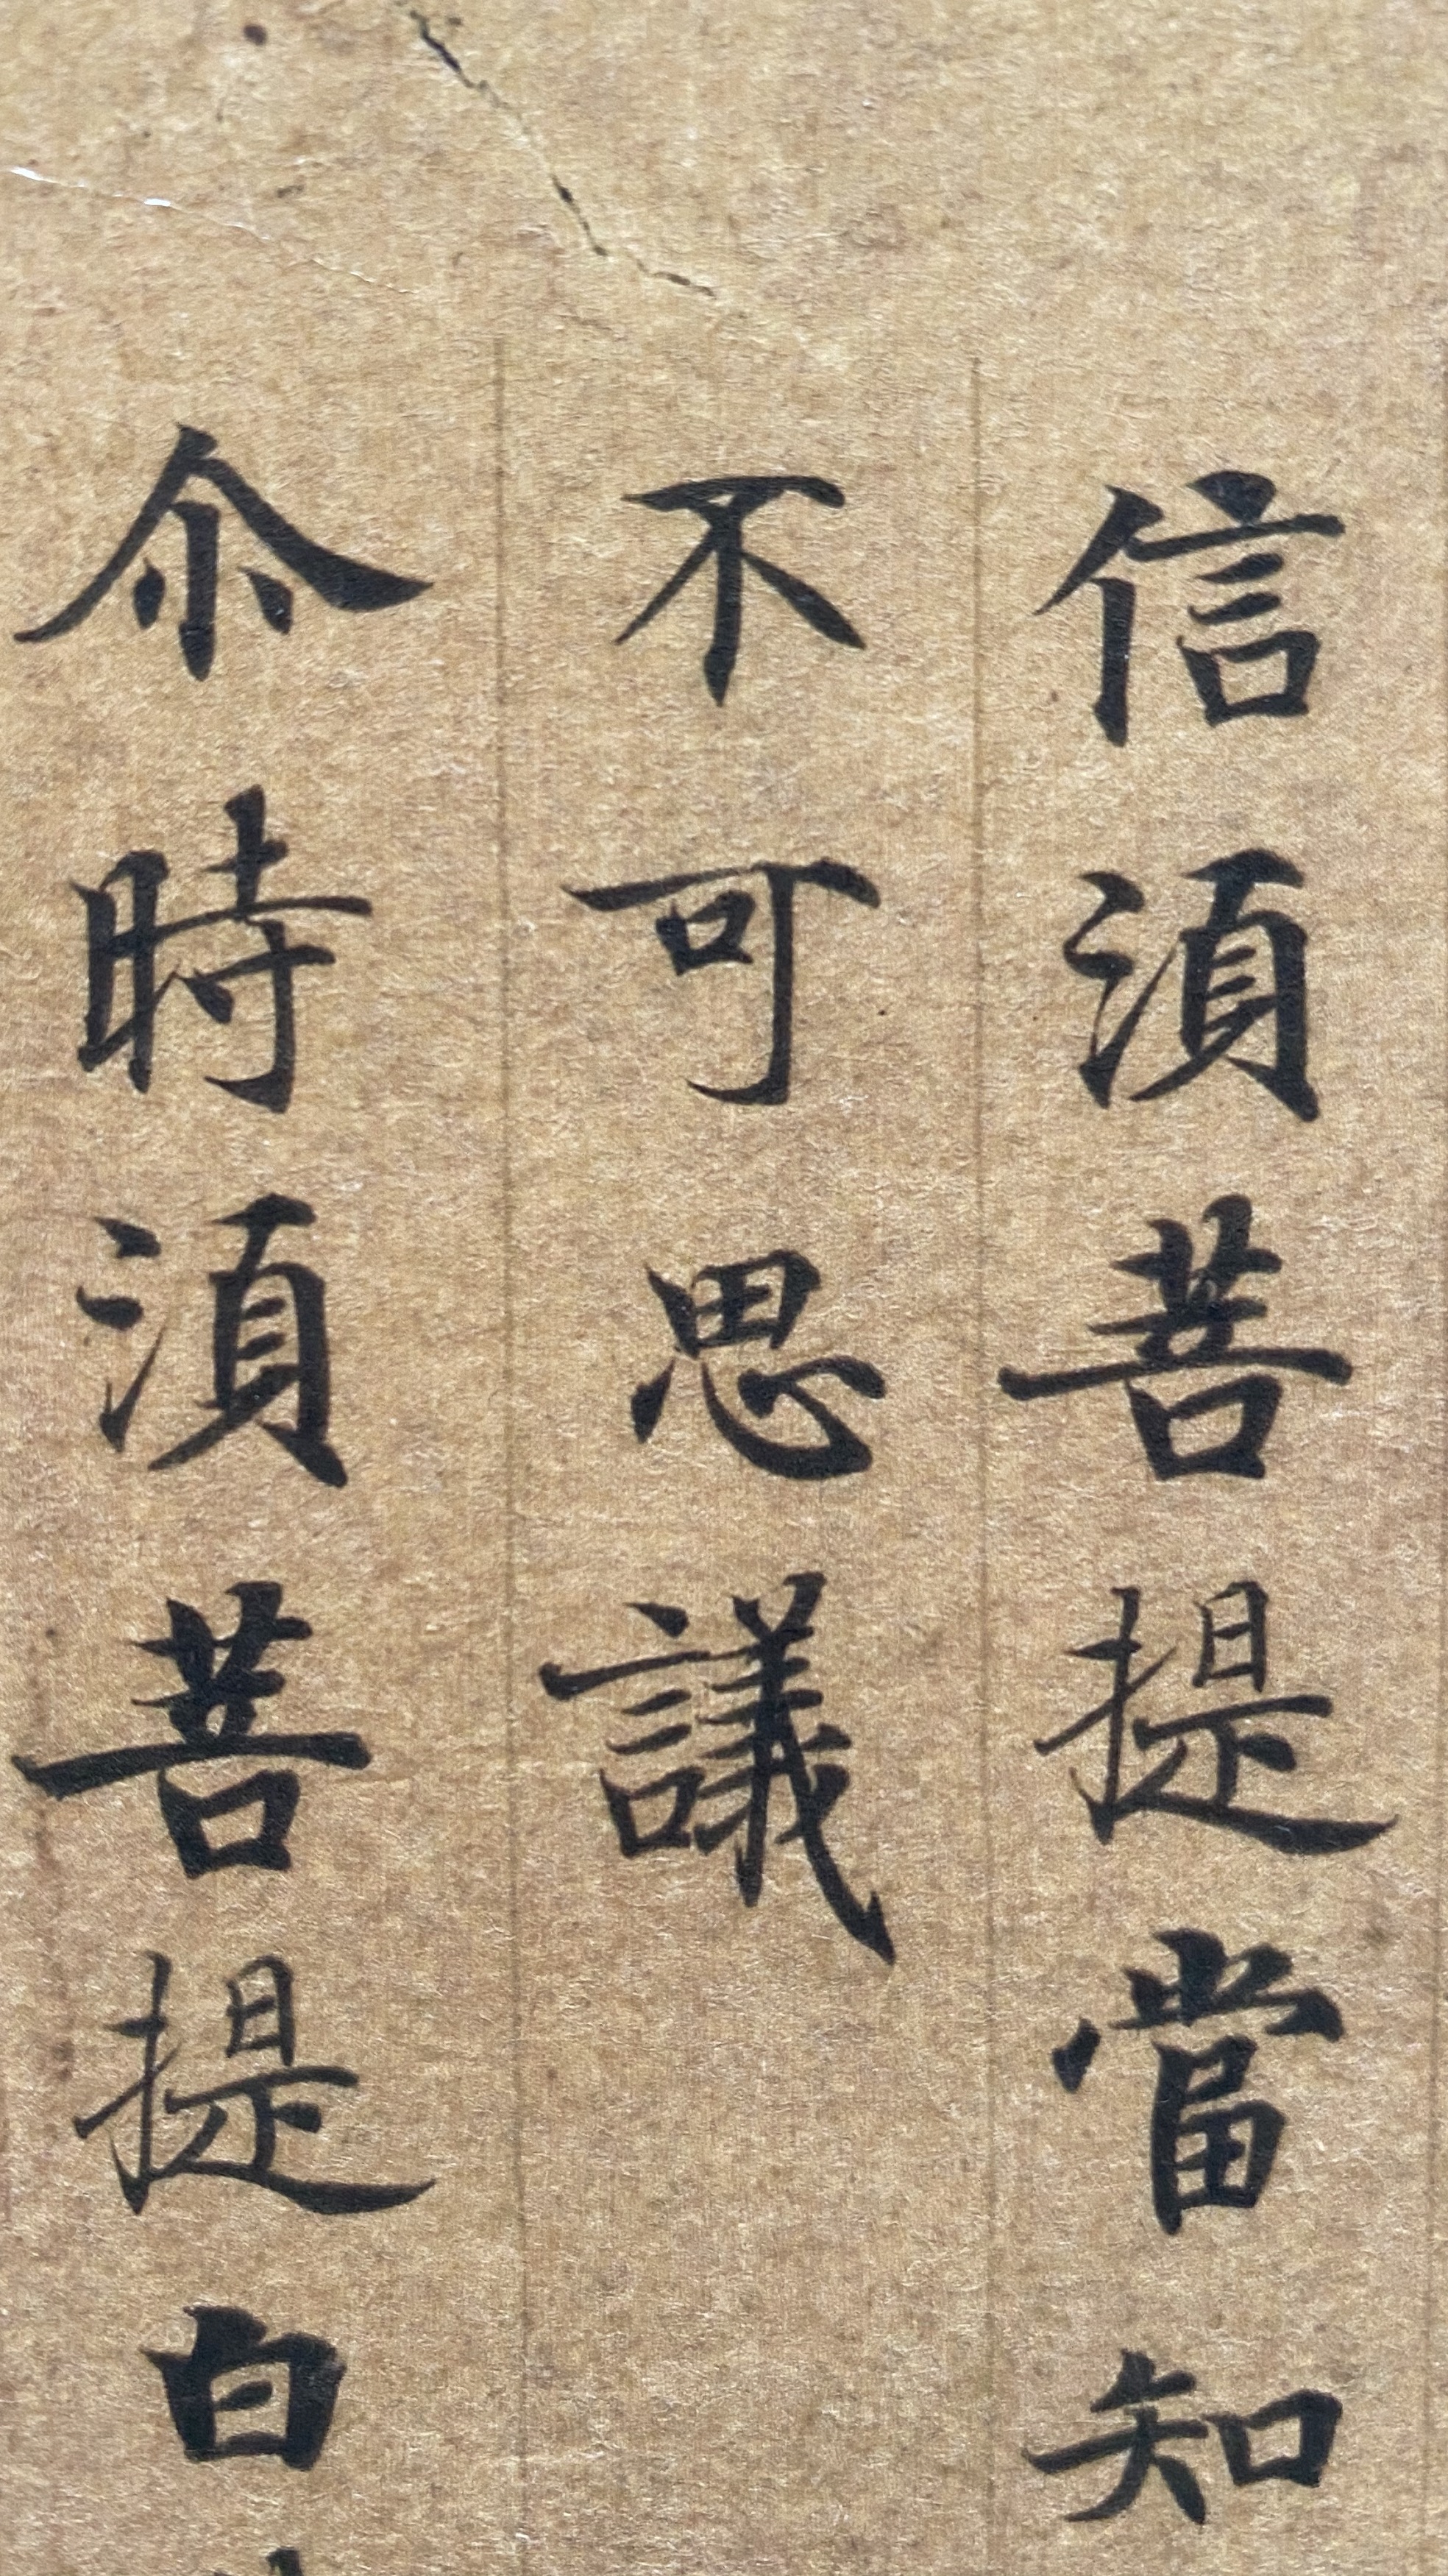 信湏菩提當知
不可思議
尒時湏菩提白